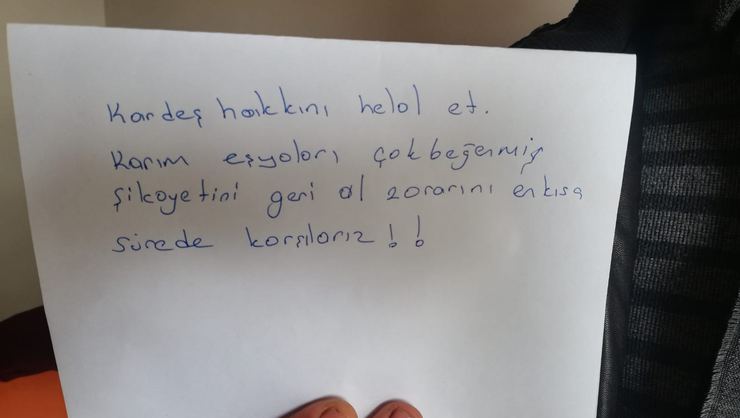 Kardeş hakkını helal et.
Karım eşyaları çok beğenmiş
şikayetini geri al zararını en kısa
sürede karşılarız!!